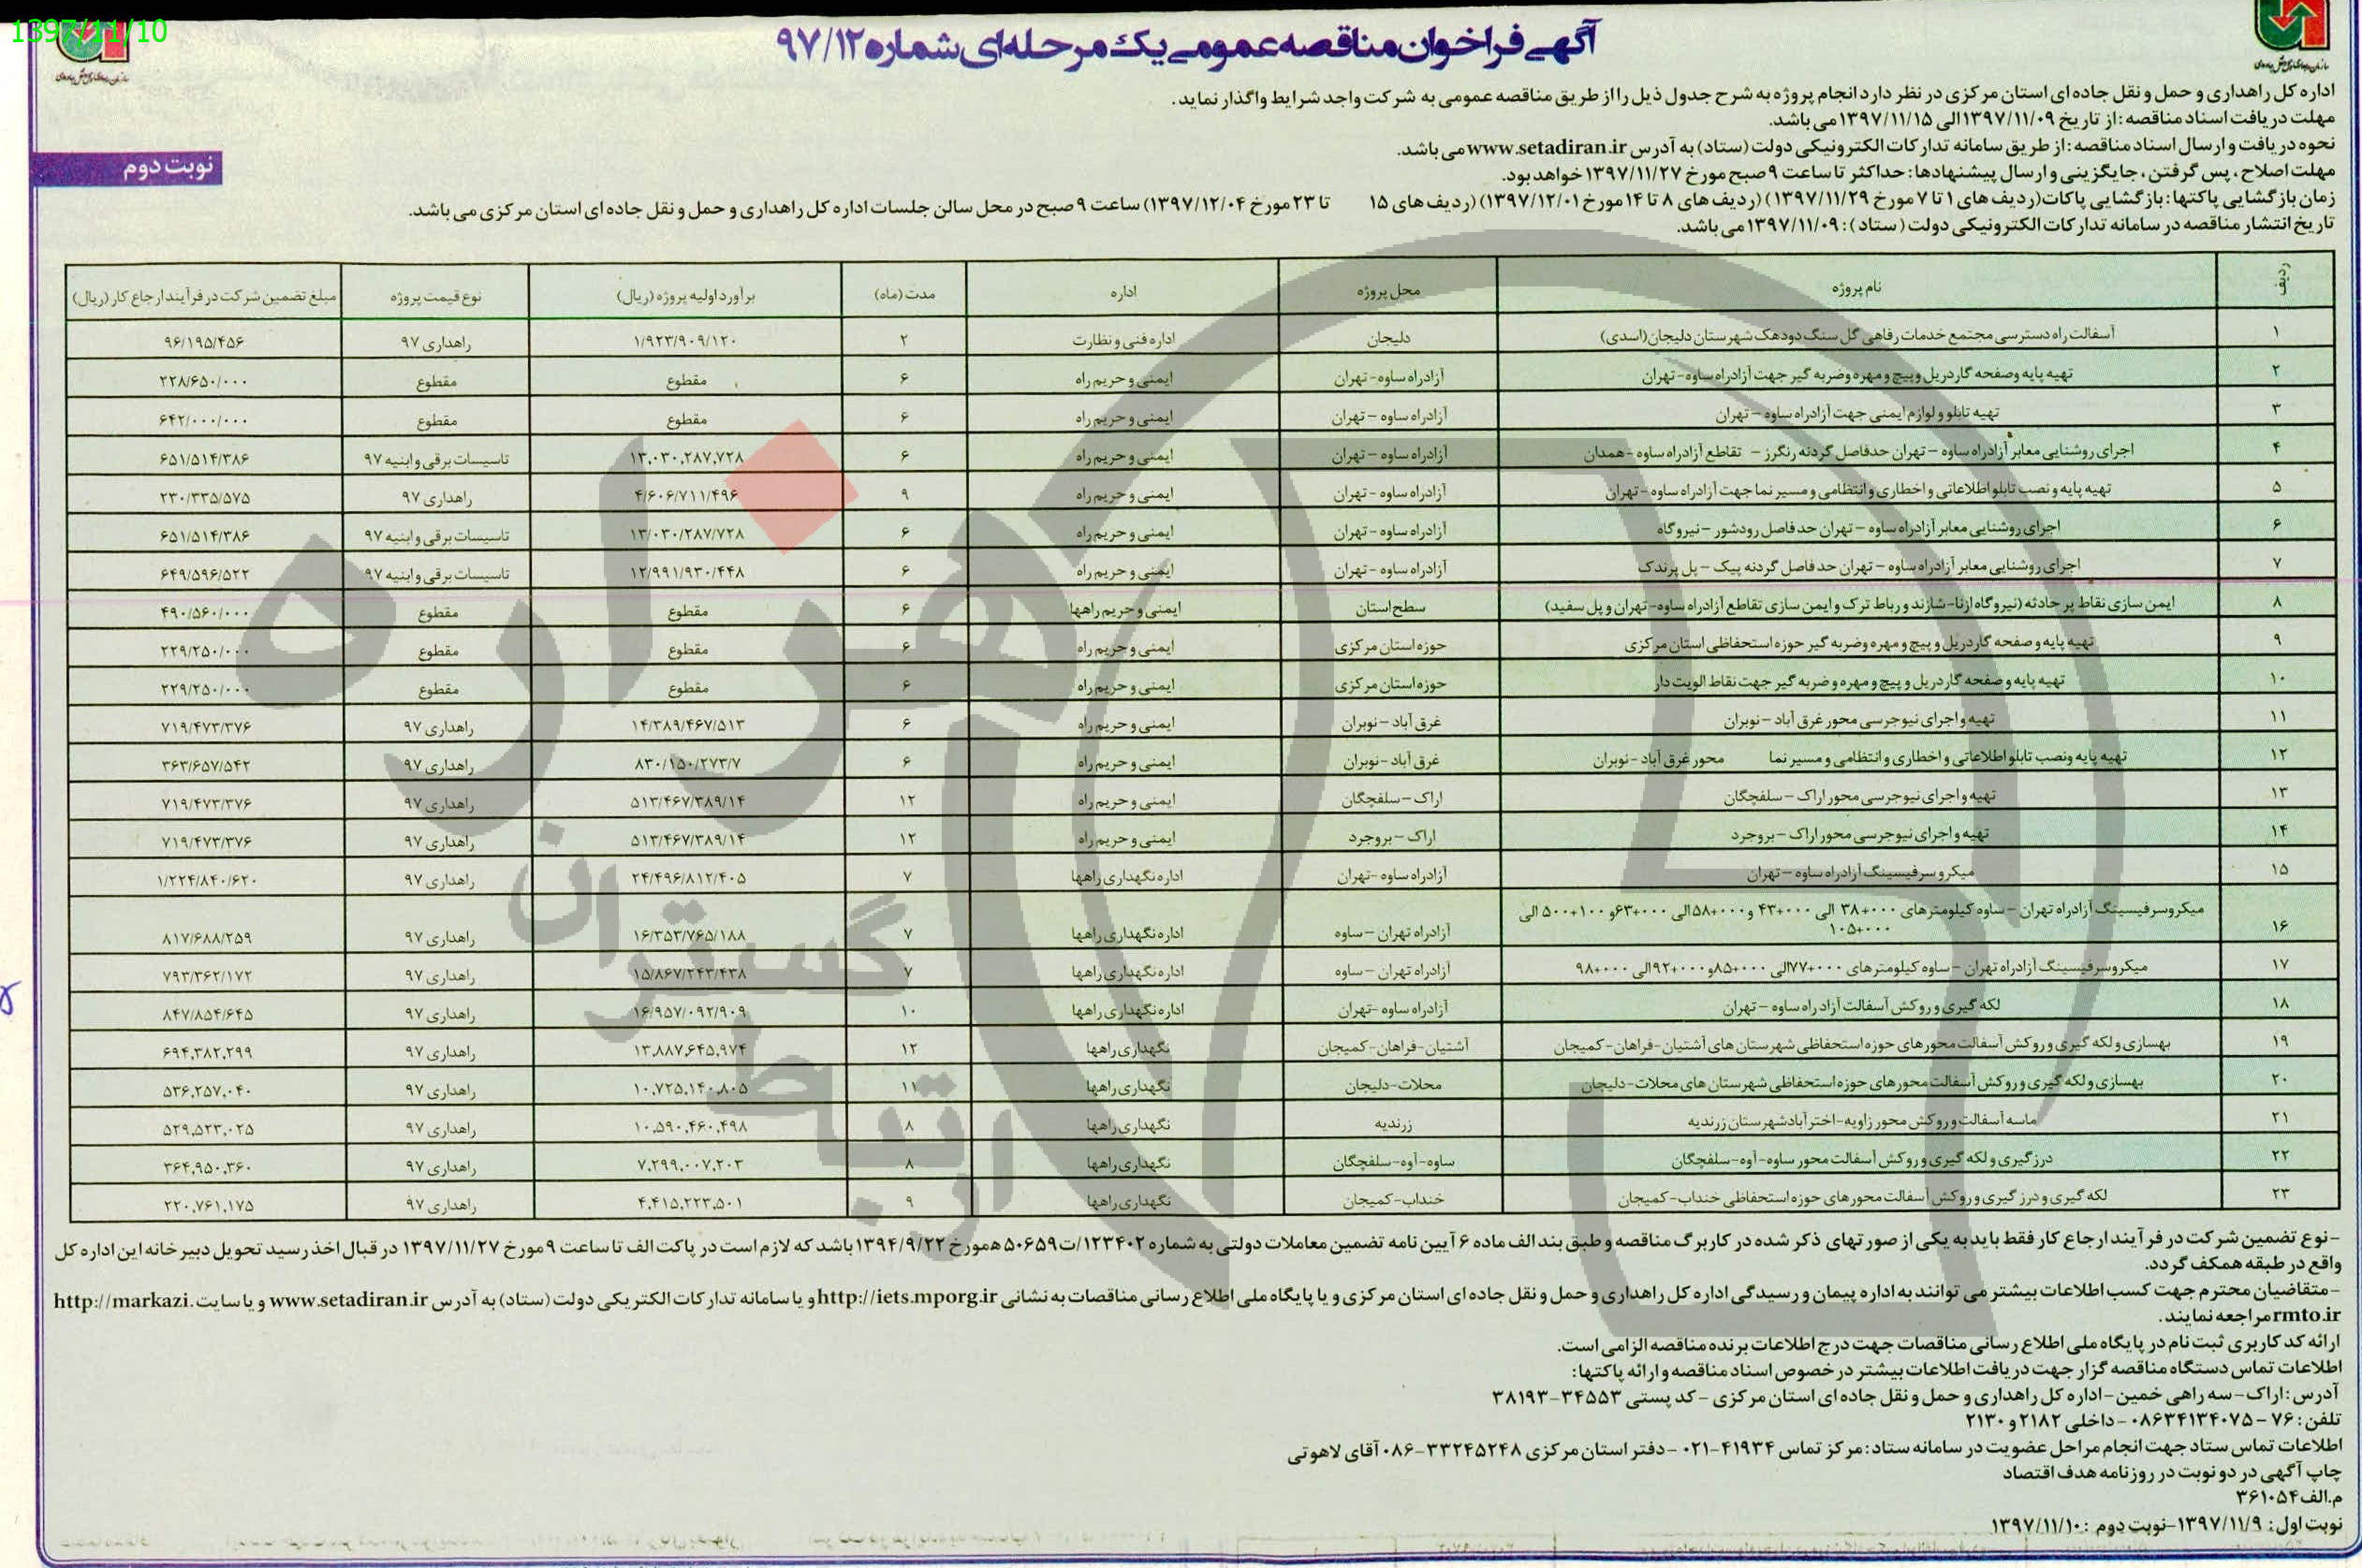 1397/11/10
آگهی فراخوان مناقصه عمومی یک مرحله‌ای شماره ۹۷/۱۲
اداره کل راهداری و حمل و نقل جاده ای استان مرکزی در نظر دارد انجام پروژه به شرح جدول ذیل را از طریق مناقصه عمومی به شرکت واجد شرایط واگذار نماید.
مهلت دریافت اسناد مناقصه: از تاریخ ۱۳۹۷/۱۱/۰۹ الی ۱۳۹۷/۱۱/۱۵ می باشد.
نحوه دریافت و ارسال اسناد مناقصه: از طریق سامانه تدارکات الکترونیکی دولت (ستاد) به آدرس www.setadiran.ir می باشد.
نوبت دوم
مهلت اصلاح، پس گرفتن، جایگزینی و ارسال پیشنهادها: حداکثر تا ساعت ۹ صبح مورخ ۱۳۹۷/۱۱/۲۷ خواهد بود.
زمان بازگشایی پاکتها: بازگشایی پاکات (ردیف های ۱ تا ۷ مورخ ۱۳۹۷/۱۱/۲۹) (ردیف های ۸ تا ۱۴ مورخ ۱۳۹۷/۱۲/۰۱) (ردیف های ۱۵ تا ۲۳ مورخ ۱۳۹۷/۱۲/۰۴) ساعت ۹ صبح در محل سالن جلسات اداره کل راهداری و حمل و نقل جاده ای استان مرکزی می باشد.
تاریخ انتشار مناقصه در سامانه تدارکات الکترونیکی دولت (ستاد): ۱۳۹۷/۱۱/۰۹ می باشد.
ردیف نام پروژه محل پروژه اداره مدت (ماه) برآورد اولیه پروژه (ریال) نوع قیمت پروژه مبلغ تضمین شرکت در فرآیند ارجاع کار (ریال)
۱ آسفالت راه دسترسی مجتمع خدمات رفاهی گل سنگ دودهک شهرستان دلیجان (اسدی) دلیجان اداره فنی و نظارت ۲ ۱/۹۲۳/۹۰۹/۱۲۰ راهداری ۹۷ ۹۶/۱۹۵/۴۵۶
۲ تهیه پایه وصفحه گاردریل و پیچ و مهره وضربه گیر جهت آزادراه ساوه-تهران آزادراه ساوه-تهران ایمنی و حریم راه ۶ مقطوع مقطوع ۲۲۸/۶۵۰/۰۰۰
۳ تهیه تابلو و لوازم ایمنی جهت آزادراه ساوه – تهران آزادراه ساوه – تهران ایمنی و حریم راه ۶ مقطوع مقطوع ۶۴۲/۰۰۰/۰۰۰
۴ اجرای روشنایی معابر آزادراه ساوه – تهران حدفاصل گردنه رنگرز – تقاطع آزادراه ساوه-همدان آزادراه ساوه – تهران ایمنی و حریم راه ۶ ۱۳,۰۳۰,۲۸۷,۷۲۸ تاسیسات برقی و ابنیه ۹۷ ۶۵۱/۵۱۴/۳۸۶
۵ تهیه پایه و نصب تابلو اطلاعاتی و اخطاری و انتظامی و مسیر نما جهت آزادراه ساوه-تهران آزادراه ساوه-تهران ایمنی و حریم راه ۹ ۴/۶۰۶/۷۱۱/۴۹۶ راهداری ۹۷ ۲۳۰/۳۳۵/۵۷۵
۶ اجرای روشنایی معابر آزادراه ساوه – تهران حدفاصل رودشور – نیروگاه آزادراه ساوه – تهران ایمنی و حریم راه ۶ ۱۳/۰۳۰/۲۸۷/۷۲۸ تاسیسات برقی و ابنیه ۹۷ ۶۵۱/۵۱۴/۳۸۶
۷ اجرای روشنایی معابر آزادراه ساوه – تهران حدفاصل گردنه پیک – پل پرندک آزادراه ساوه -تهران ایمنی و حریم راه ۶ ۱۲/۹۹۱/۹۳۰/۴۴۸ تاسیسات برقی و ابنیه ۹۷ ۶۴۹/۵۹۶/۵۲۲
۸ ایمن سازی نقاط پر حادثه (نیروگاه ازنا-شازند و رباط ترک و ایمن سازی تقاطع آزادراه ساوه-تهران و پل سفید) سطح استان ایمنی و حریم راهها ۶ مقطوع مقطوع ۴۹۰/۵۶۰/۰۰۰
۹ تهیه پایه و صفحه گاردریل و پیچ و مهره وضربه گیر حوزه استحفاظی استان مرکزی حوزه استان مرکزی ایمنی و حریم راه ۶ مقطوع مقطوع ۲۲۹/۲۵۰/۰۰۰
۱۰ تهیه پایه و صفحه گاردریل و پیچ و مهره و ضربه گیر جهت نقاط الویت دار حوزه استان مرکزی ایمنی و حریم راه ۶ مقطوع مقطوع ۲۲۹/۲۵۰/۰۰۰
۱۱ تهیه و اجرای نیوجرسی محور غرق آباد – نوبران غرق آباد – نوبران ایمنی و حریم راه ۶ ۱۴/۳۸۹/۴۶۷/۵۱۳ راهداری ۹۷ ۷۱۹/۴۷۳/۳۷۶
۱۲ تهیه پایه ونصب تابلو اطلاعاتی و اخطاری و انتظامی و مسیر نما محور غرق آباد -نوبران غرق آباد -نوبران ایمنی و حریم راه ۶ ۸۳۰/۱۵۰/۲۷۳/۷ راهداری ۹۷ ۳۶۳/۶۵۷/۵۴۲
۱۳ تهیه و اجرای نیوجرسی محور اراک – سلفچگان اراک – سلفچگان ایمنی و حریم راه ۱۲ ۵۱۳/۴۶۷/۳۸۹/۱۴ راهداری ۹۷ ۷۱۹/۴۷۳/۳۷۶
۱۴ تهیه و اجرای نیوجرسی محور اراک – بروجرد اراک – بروجرد ایمنی و حریم راه ۱۲ ۵۱۳/۴۶۷/۳۸۹/۱۴ راهداری ۹۷ ۷۱۹/۴۷۳/۳۷۶
۱۵ میکرو سرفیسینگ آزادراه ساوه – تهران آزادراه ساوه -تهران اداره نگهداری راهها ۷ ۲۴/۴۹۶/۸۱۲/۴۰۵ راهداری ۹۷ ۱/۲۲۴/۸۴۰/۶۲۰
۱۶ میکروسرفیسینگ آزادراه تهران – ساوه کیلومترهای ۳۸+۰۰۰ الی ۴۳+۰۰۰ و ۵۸+۰۰۰ الی ۶۳+۰۰۰ و ۱۰۰+۵۰۰ الی
۱۰۵+۰۰۰ آزادراه تهران – ساوه اداره نگهداری راهها ۷ ۱۶/۳۵۳/۷۶۵/۱۸۸ راهداری ۹۷ ۸۱۷/۶۸۸/۲۵۹
۱۷ میکروسرفیسینگ آزادراه تهران – ساوه کیلومترهای ۷۷+۰۰۰ الی ۸۵+۰۰۰ و ۹۲+۰۰۰ الی ۹۸+۰۰۰ آزادراه تهران – ساوه اداره نگهداری راهها ۷ ۱۵/۸۶۷/۲۴۳/۴۳۸ راهداری ۹۷ ۷۹۳/۳۶۲/۱۷۲
۱۸ لکه گیری و روکش آسفالت آزاد راه ساوه – تهران آزادراه ساوه -تهران اداره نگهداری راهها ۱۰ ۱۶/۹۵۷/۰۹۲/۹۰۹ راهداری ۹۷ ۸۴۷/۸۵۴/۶۴۵
۱۹ بهسازی و لکه گیری و روکش آسفالت محورهای حوزه استحفاظی شهرستان های آشتیان-فراهان-کمیجان آشتیان-فراهان-کمیجان نگهداری راهها ۱۲ ۱۳,۸۸۷,۶۴۵,۹۷۴ راهداری ۹۷ ۶۹۴,۳۸۲,۲۹۹
۲۰ بهسازی و لکه گیری و روکش آسفالت محورهای حوزه استحفاظی شهرستان های محلات-دلیجان محلات-دلیجان نگهداری راهها ۱۱ ۱۰,۷۲۵,۱۴۰,۸۰۵ راهداری ۹۷ ۵۳۶,۲۵۷,۰۴۰
۲۱ ماسه آسفالت و روکش محور زاویه-اختر آباد شهرستان زرندیه زرندیه نگهداری راهها ۸ ۱۰,۵۹۰,۴۶۰,۴۹۸ راهداری ۹۷ ۵۲۹,۵۲۳,۰۲۵
۲۲ درزگیری و لکه گیری و روکش آسفالت محور ساوه-آوه-سلفچگان ساوه-آوه-سلفچگان نگهداری راهها ۸ ۷,۲۹۹,۰۰۷,۲۰۳ راهداری ۹۷ ۳۶۴,۹۵۰,۳۶۰
۲۳ لکه گیری و درزگیری و روکش آسفالت محورهای حوزه استحفاظی خنداب-کمیجان خنداب-کمیجان نگهداری راهها ۹ ۴,۴۱۵,۲۲۳,۵۰۱ راهداری ۹۷ ۲۲۰,۷۶۱,۱۷۵
هزاره
ارتباط گستران
-نوع تضمین شرکت در فرآیند ارجاع کار فقط باید به یکی از صورتهای ذکر شده در کاربرگ مناقصه و طبق بند الف ماده ۶ آیین نامه تضمین معاملات دولتی به شماره ۱۲۳۴۰۲/ت۵۰۶۵۹ه مورخ ۱۳۹۴/۹/۲۲ باشد که لازم است در پاکت الف تا ساعت ۹ مورخ ۱۳۹۷/۱۱/۲۷ در قبال اخذ رسید تحویل دبیرخانه این اداره کل
واقع در طبقه همکف گردد.
-متقاضیان محترم جهت کسب اطلاعات بیشتر می توانند به اداره پیمان و رسیدگی اداره کل راهداری و حمل و نقل جاده ای استان مرکزی و یا پایگاه ملی اطلاع رسانی مناقصات به نشانی http://iets.mporg.ir و یا سامانه تدارکات الکتریکی دولت (ستاد) به آدرس www.setadiran.ir و یا سایت http://markazi.
rmto.ir مراجعه نمایند.
ارائه کد کاربری ثبت نام در پایگاه ملی اطلاع رسانی مناقصات جهت درج اطلاعات برنده مناقصه الزامی است.
اطلاعات تماس دستگاه مناقصه گزار جهت دریافت اطلاعات بیشتر در خصوص اسناد مناقصه و ارائه پاکتها:
آدرس: اراک-سه راهی خمین-اداره کل راهداری و حمل و نقل جاده ای استان مرکزی – کد پستی ۳۴۵۵۳-۳۸۱۹۳
تلفن: ۷۶ – ۰۸۶۳۴۱۳۴۰۷۵ -داخلی ۲۱۸۲ و ۲۱۳۰
اطلاعات تماس ستاد جهت انجام مراحل عضویت در سامانه ستاد: مرکز تماس ۴۱۹۳۴-۰۲۱ -دفتر استان مرکزی ۳۳۲۴۵۲۴۸-۰۸۶ آقای لاهوتی
چاپ آگهی در دو نوبت در روزنامه هدف اقتصاد
م.الف ۳۶۱۰۵۴
نوبت اول: ۱۳۹۷/۱۱/۹-نوبت دوم: ۱۳۹۷/۱۱/۱۰